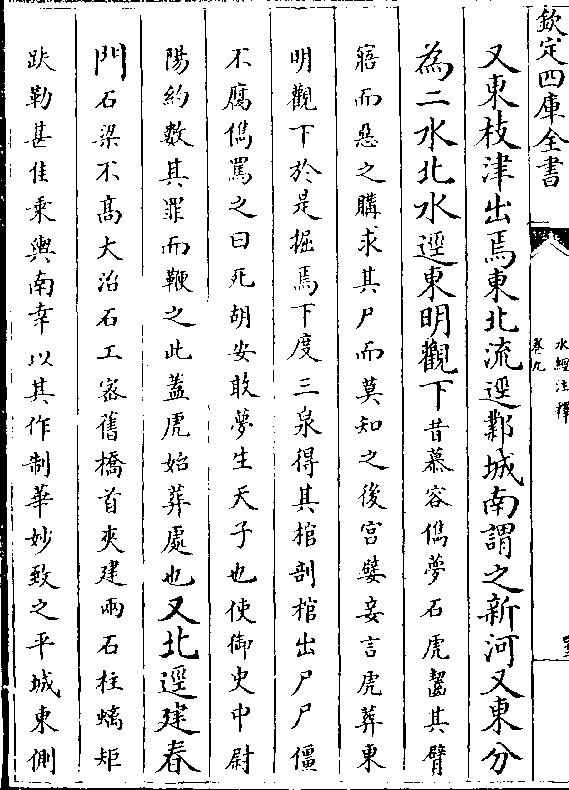 欽定四庫全書
水經注釋
卷九
又東枝津出焉東北流逕鄴城南謂之新河又東分
為二水北水逕東明觀下昔慕容儁夢石虎齧其臂
寤而惡之購求其尸而莫知之後宮嬖妾言虎葬東
明觀下於是掘焉下度三泉得其棺剖棺出尸尸僵
不腐儁罵之曰死胡安敢夢生天子也使御史中尉
陽約數其罪而鞭之此蓋虎始葬處也又北逕建春
門石梁不高大治石工宻舊橋首夾建兩石柱螭矩
趺勒甚佳乘輿南幸以其作制華妙致之平城東側